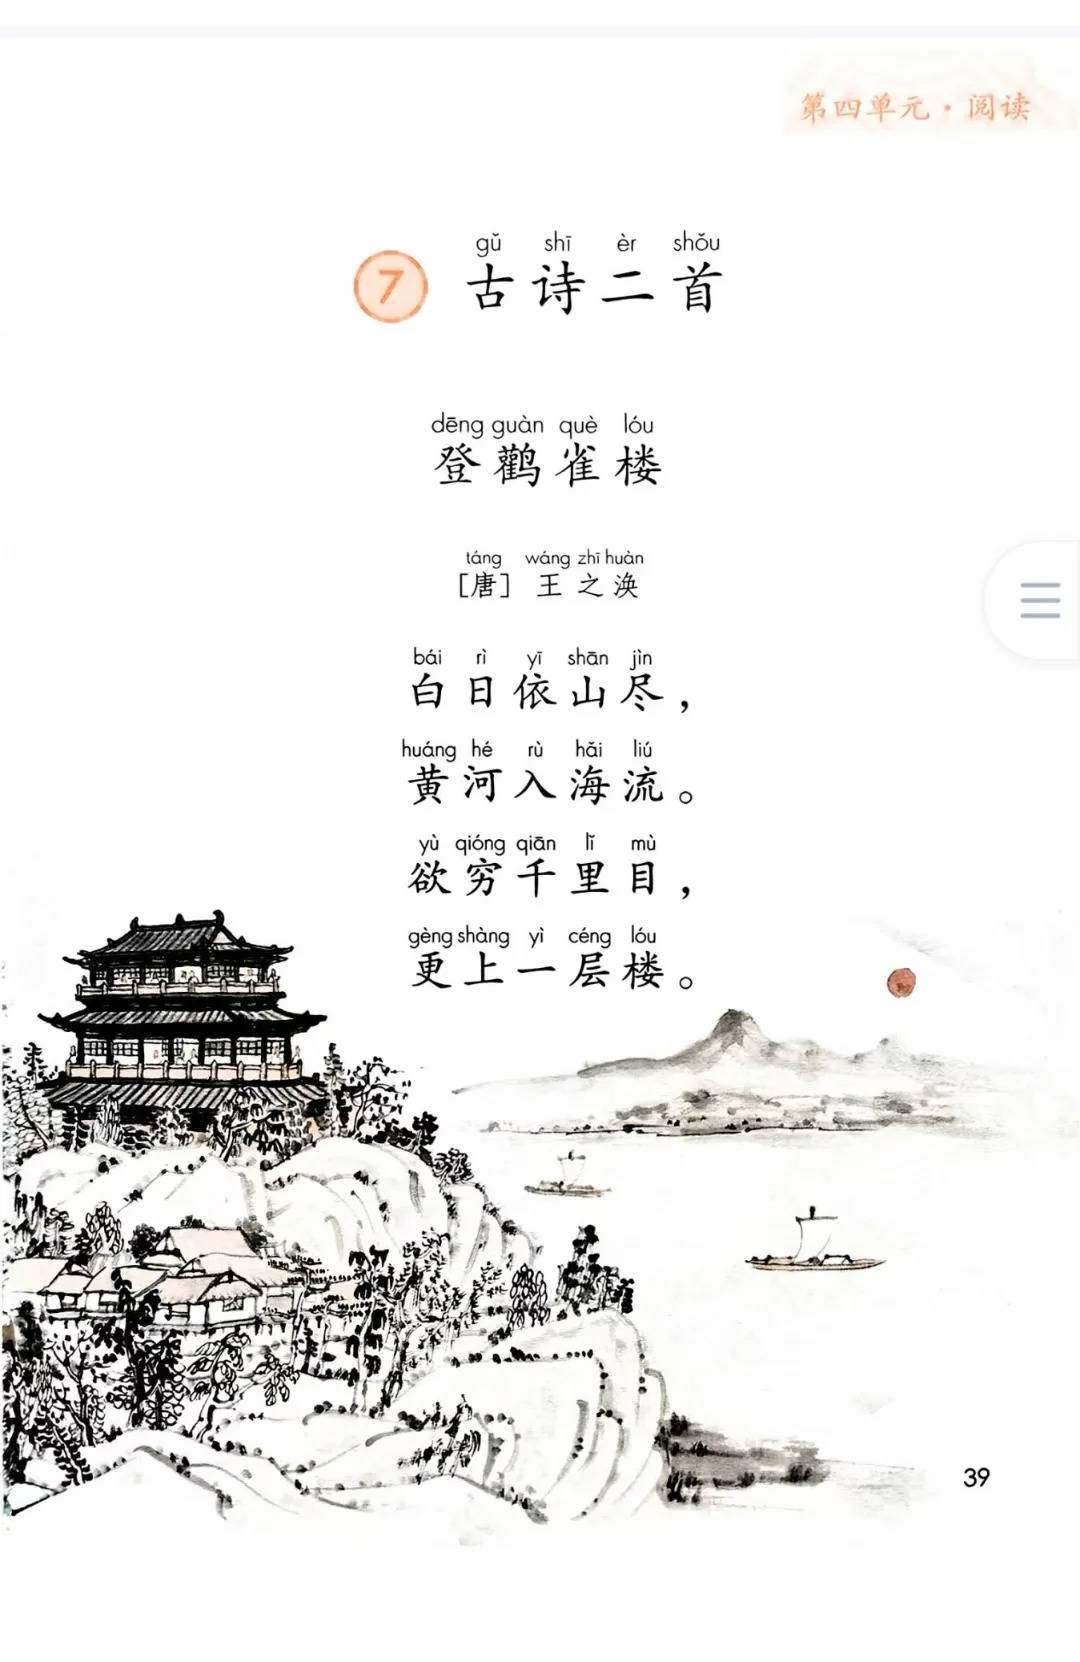 第四单元·阅读
gǔ shī èr shǒu
7 古诗二首
dēng guàn què lóu
登鹳雀楼
táng wáng zhī huàn
[唐] 王之涣
bái rì yī shān jìn
白日依山尽，
huáng hé rù hǎi liú
黄河入海流。
yù qióng qiān lǐ mù
欲穷千里目，
gèng shàng yì céng lóu
更上一层楼。
39